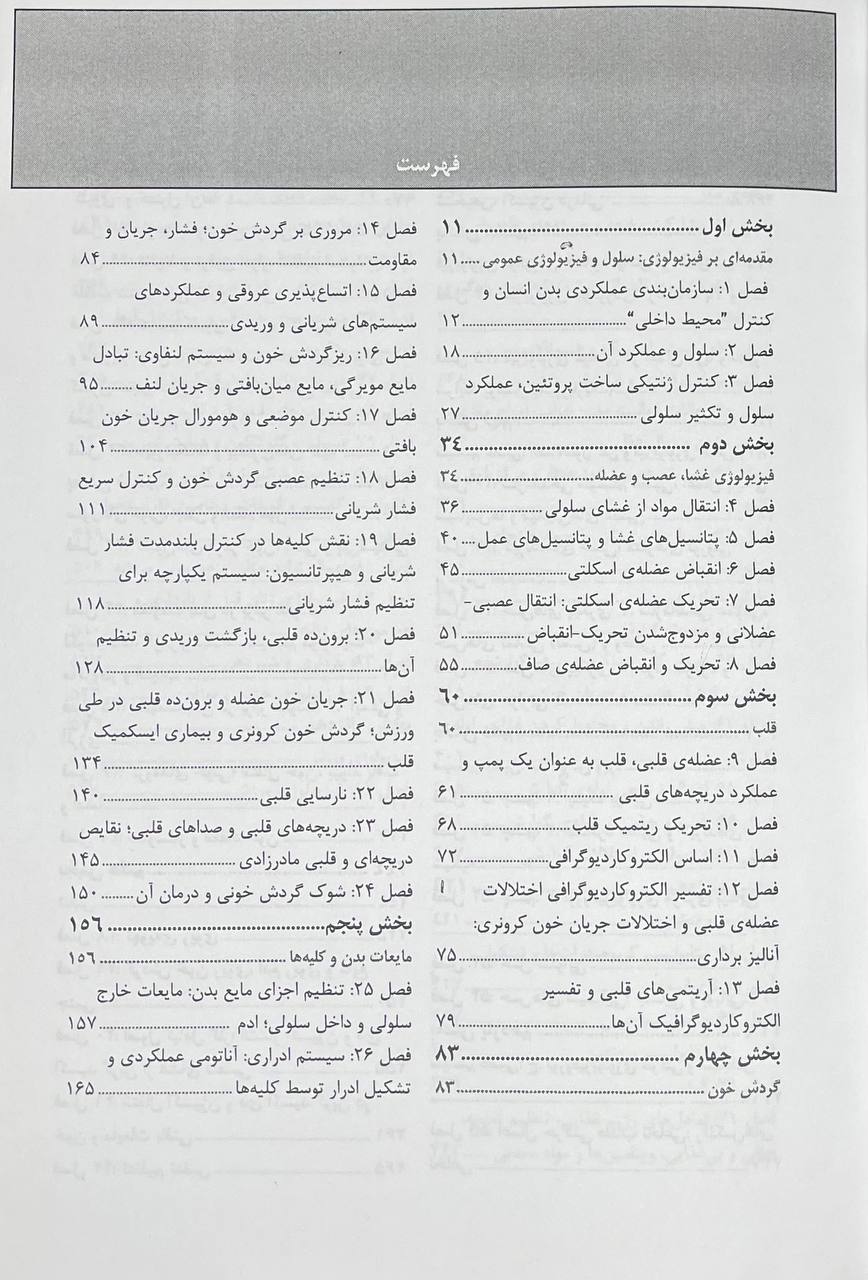 فهرست
بخش اول ........ ۱۱
مقدمه‌ای بر فیزیولوژی: سلول و فیزیولوژی عمومی ..... ۱۱
فصل ۱: سازمان‌بندی عملکردی بدن انسان و
کنترل "محیط داخلی" ........ ۱۲
فصل ۲: سلول و عملکرد آن ........ ۱۸
فصل ۳: کنترل ژنتیکی ساخت پروتئین، عملکرد
سلول و تکثیر سلولی ........ ۲۷
بخش دوم ........ ۳۴
فیزیولوژی غشا، عصب و عضله ........ ۳۴
فصل ۴: انتقال مواد از غشای سلولی ........ ۳۶
فصل ۵: پتانسیل‌های غشا و پتانسیل‌های عمل .... ۴۰
فصل ۶: انقباض عضله‌ی اسکلتی ........ ۴۵
فصل ۷: تحریک عضله‌ی اسکلتی: انتقال عصبی-
عضلانی و مزدوج‌شدن تحریک-انقباض ........ ۵۱
فصل ۸: تحریک و انقباض عضله‌ی صاف ........ ۵۵
بخش سوم ........ ۶۰
قلب ........ ۶۰
فصل ۹: عضله‌ی قلبی، قلب به عنوان یک پمپ و
عملکرد دریچه‌های قلبی ........ ۶۱
فصل ۱۰: تحریک ریتمیک قلب ........ ۶۸
فصل ۱۱: اساس الکتروکاردیوگرافی ........ ۷۲
فصل ۱۲: تفسیر الکتروکاردیوگرافی اختلالات
عضله‌ی قلبی و اختلالات جریان خون کرونری:
آنالیز برداری ........ ۷۵
فصل ۱۳: آریتمی‌های قلبی و تفسیر
الکتروکاردیوگرافیک آن‌ها ........ ۷۹
بخش چهارم ........ ۸۳
گردش خون ........ ۸۳
فصل ۱۴: مروری بر گردش خون؛ فشار، جریان و
مقاومت ........ ۸۴
فصل ۱۵: اتساع‌پذیری عروقی و عملکردهای
سیستم‌های شریانی و وریدی ........ ۸۹
فصل ۱۶: ریزگردش خون و سیستم لنفاوی: تبادل
مایع مویرگی، مایع میان‌بافتی و جریان لنف ........ ۹۵
فصل ۱۷: کنترل موضعی و هومورال جریان خون
بافتی ........ ۱۰۴
فصل ۱۸: تنظیم عصبی گردش خون و کنترل سریع
فشار شریانی ........ ۱۱۱
فصل ۱۹: نقش کلیه‌ها در کنترل بلندمدت فشار
شریانی و هیپرتانسیون: سیستم یکپارچه برای
تنظیم فشار شریانی ........ ۱۱۸
فصل ۲۰: برون‌ده قلبی، بازگشت وریدی و تنظیم
آن‌ها ........ ۱۲۸
فصل ۲۱: جریان خون عضله و برون‌ده قلبی در طی
ورزش؛ گردش خون کرونری و بیماری ایسکمیک
قلب ........ ۱۳۴
فصل ۲۲: نارسایی قلبی ........ ۱۴۰
فصل ۲۳: دریچه‌های قلبی و صداهای قلبی؛ نقایص
دریچه‌ای و قلبی مادرزادی ........ ۱۴۵
فصل ۲۴: شوک گردش خونی و درمان آن ........ ۱۵۰
بخش پنجم ........ ۱۵۶
مایعات بدن و کلیه‌ها ........ ۱۵۶
فصل ۲۵: تنظیم اجزای مایع بدن: مایعات خارج
سلولی و داخل سلولی؛ ادم ........ ۱۵۷
فصل ۲۶: سیستم ادراری: آناتومی عملکردی و
تشکیل ادرار توسط کلیه‌ها ........ ۱۶۵